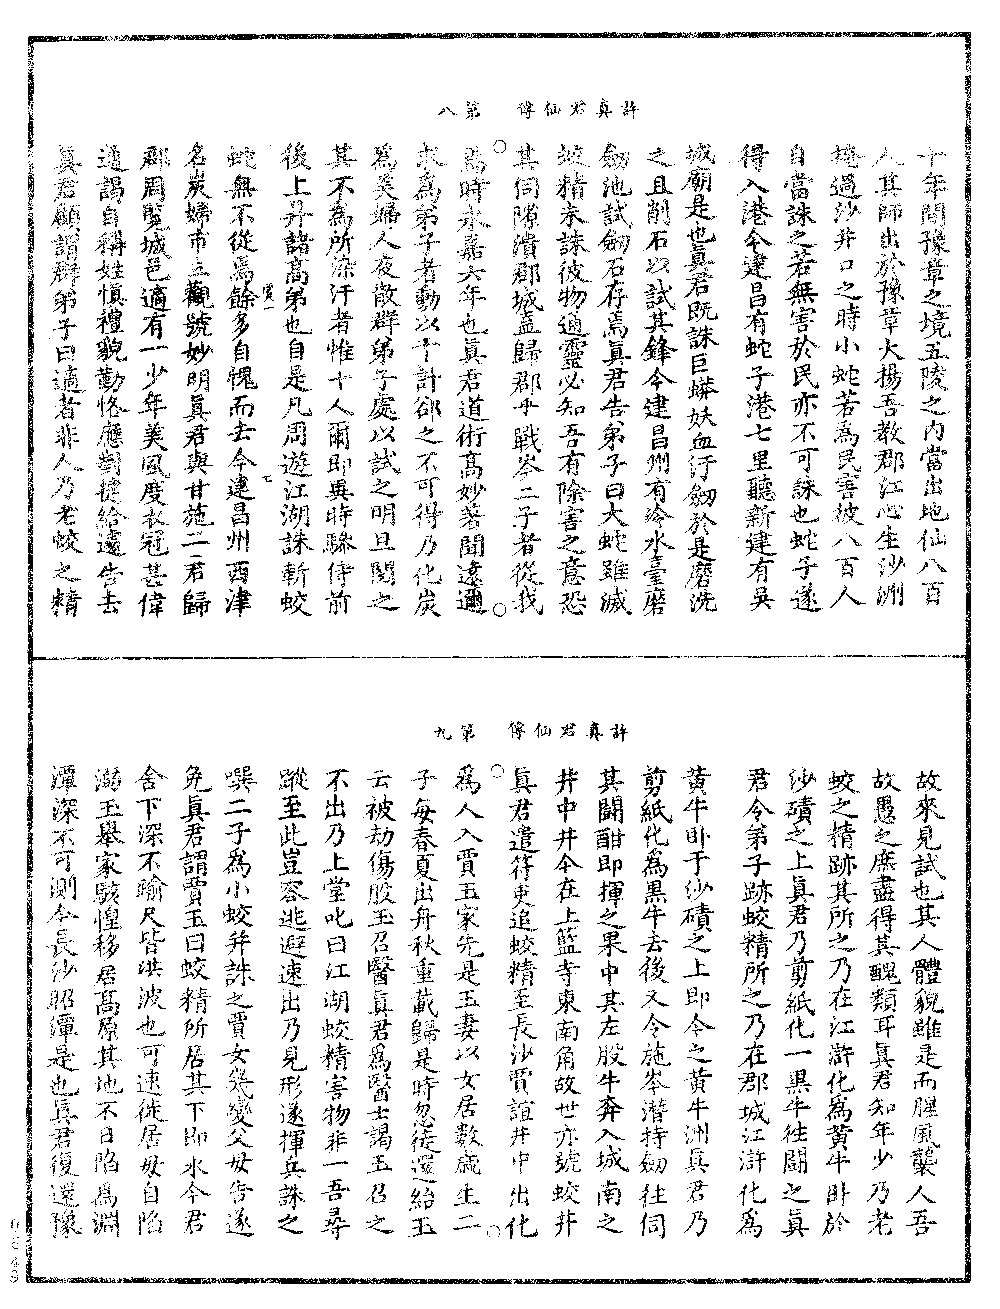 許真君仙傳 第八
十年間豫章之境五陵之內當出地仙八百
人其師出於豫章大揚吾教郡江心生沙洲
掩過沙井口之時小蛇若為民害彼八百人
自當誅之若無害於民亦不可誅也蛇子遂
得入港今建昌有蛇子港七里聽新建有吳
城廟是也真君既誅巨蟒妖血汙劒於是磨洗
之且削石以試其鋒今建昌州有冷水臺磨
劒池試劒石存焉真君告弟子曰大蛇雖滅
蛟精未誅彼物通靈必知吾有除害之意恐
其伺隙潰郡城盍歸郡乎戰岑二子者從我
焉時永嘉六年也真君道術高妙著聞遠邇
求為弟子者動以千計郤之不可得乃化炭
為美婦人夜散群弟子處以試之明旦閱之
其不為所染汙者惟十人爾即異時驂侍前
後上昇諸高弟也自是凡周遊江湖誅斬蛟
蛇無不從焉餘多自愧而去今建昌州西津
名炭婦市立觀號妙明真君與甘施二君歸
郡周覽城邑適有一少年美風度衣冠甚偉
通謁自稱姓慎禮貌勤恪應對捷給遽告去
真君顧謂群弟子曰適者非人乃老蛟之精
許真君仙傳 第九
故來見試也其人體貌雖是而腥風襲人吾
故愚之庶盡得其醜類耳真君知年少乃老
蛟之精跡其所之乃在江滸化為黃牛臥於
沙磧之上真君乃剪紙化一黑牛往鬬之真
君令弟子跡蛟精所之乃在郡城江滸化為
黃牛臥于沙磧之上即今之黃牛洲真君乃
剪紙化為黑牛去後又令施岑潛持劒往伺
其鬬酣即揮之果中其左股牛奔入城南之
井中井今在上藍寺東南角故世亦號蛟井
真君遣符吏追蛟精至長沙賈誼井中出化
為人入賈玉家先是玉妻以女居數歲生二
子每春夏出舟秋重載歸是時忽徒還紿玉
云被劫傷股玉召醫真君為醫士謁玉召之
不出乃上堂叱曰江湖蛟精害物非一吾尋
蹤至此豈容逃避速出乃見形遂揮兵誅之
噀二子為小蛟并誅之賈女幾變父母告遂
免真君謂賈玉曰蛟精所居其下即水今君
舍下深不踰尺皆洪波也可速徙居毋自陷
溺玉舉家駭惶移居高原其地不日陷為淵
潭深不可測今長沙昭潭是也真君復還豫